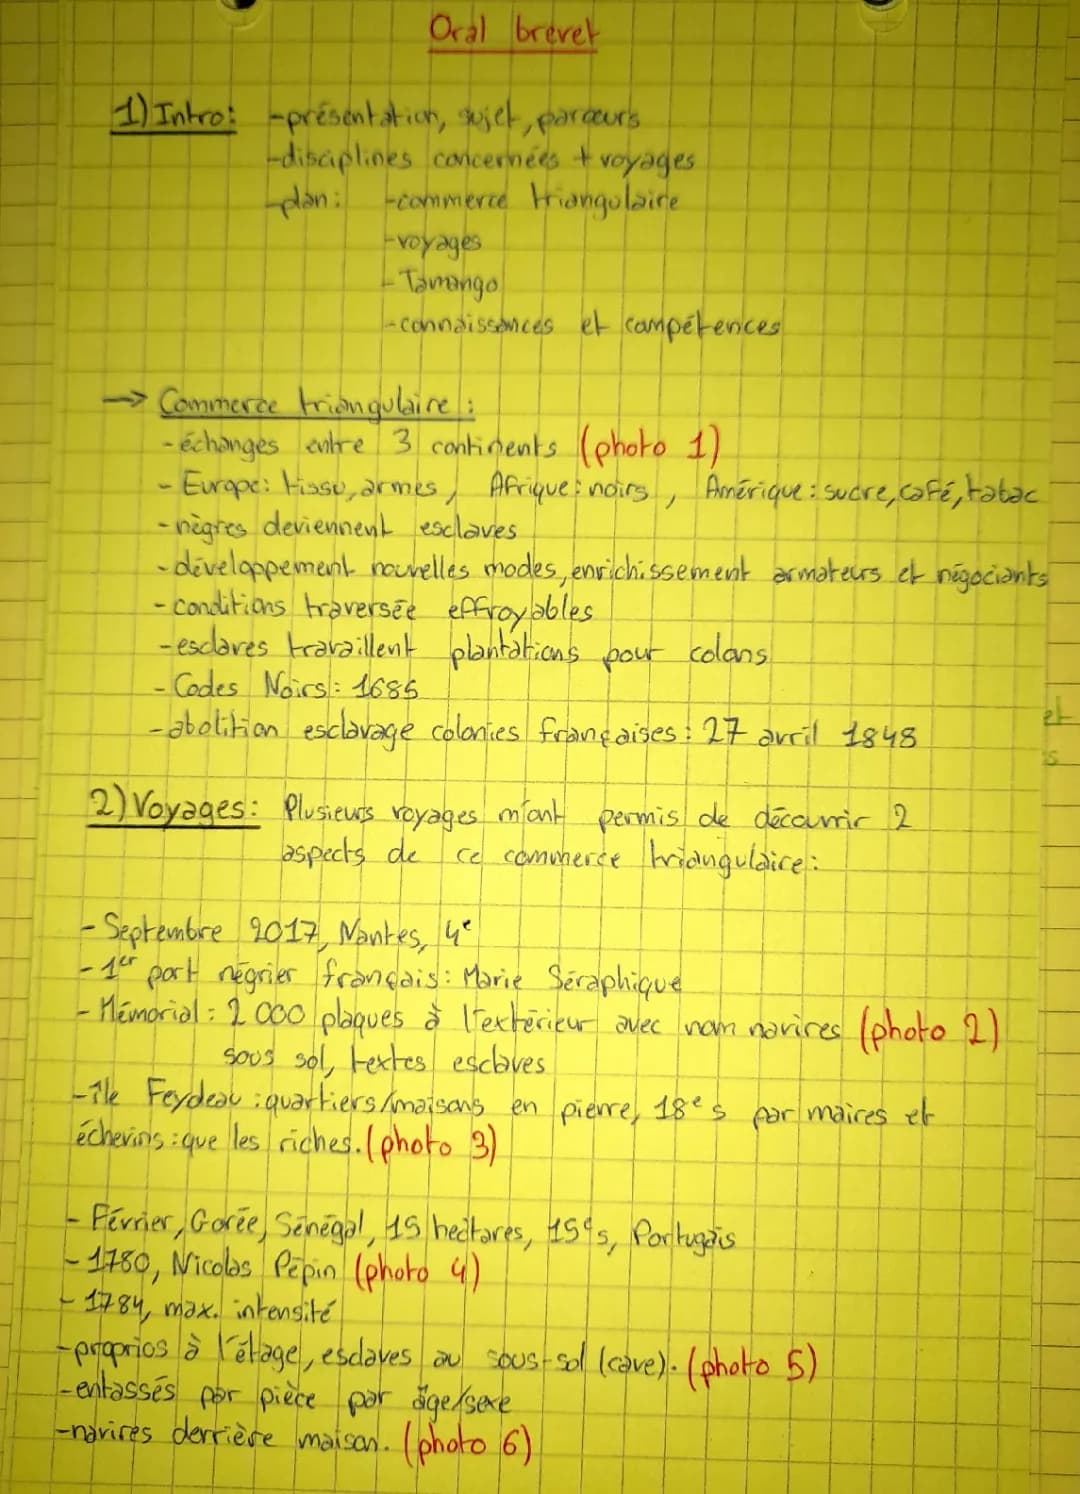 Oral brevet
1) Intro: -présentation, sujet, parcours
-disciplines concernées + voyages
-plan: -commerce triangulaire
-voyages
- Tamango
-connaissances et compétences
→ Commerce triangulaire :
-échanges entre 3 continents (photo 1)
- Europe: tissu, armes, Afrique: noirs, Amérique: sucre, café, tabac
-nègres deviennent esclaves
-développement nouvelles modes, enrichissement armateurs et négociants
-conditions traversée effroyables
-esclaves travaillent plantations pour colons
- Codes Noirs: 1685
-abolition esclavage colonies françaises: 27 avril 1848
et
s
2) Voyages: Plusieurs voyages m'ont permis de découvrir 2
aspects de ce commerce triangulaire:
- Septembre 2017, Nantes, 4e
- 1er port négrier français: Marie Séraphique
- Mémorial: 2 000 plaques à l'extérieur avec nom navires (photo 2)
sous sol, textes esclaves
-île Feydeau: quartiers/maisons en pierre, 18e s par maires et
échevins: que les riches. (photo 3)
- Février, Gorée, Sénégal, 15 hectares, 15e s, Portugais
- 1780, Nicolas Pépin (photo 4)
- 1784, max. intensité
-proprios à l'étage, esclaves au sous-sol (cave). (photo 5)
-entassés par pièce par âge/sexe
-navires derrière maison. (photo 6)